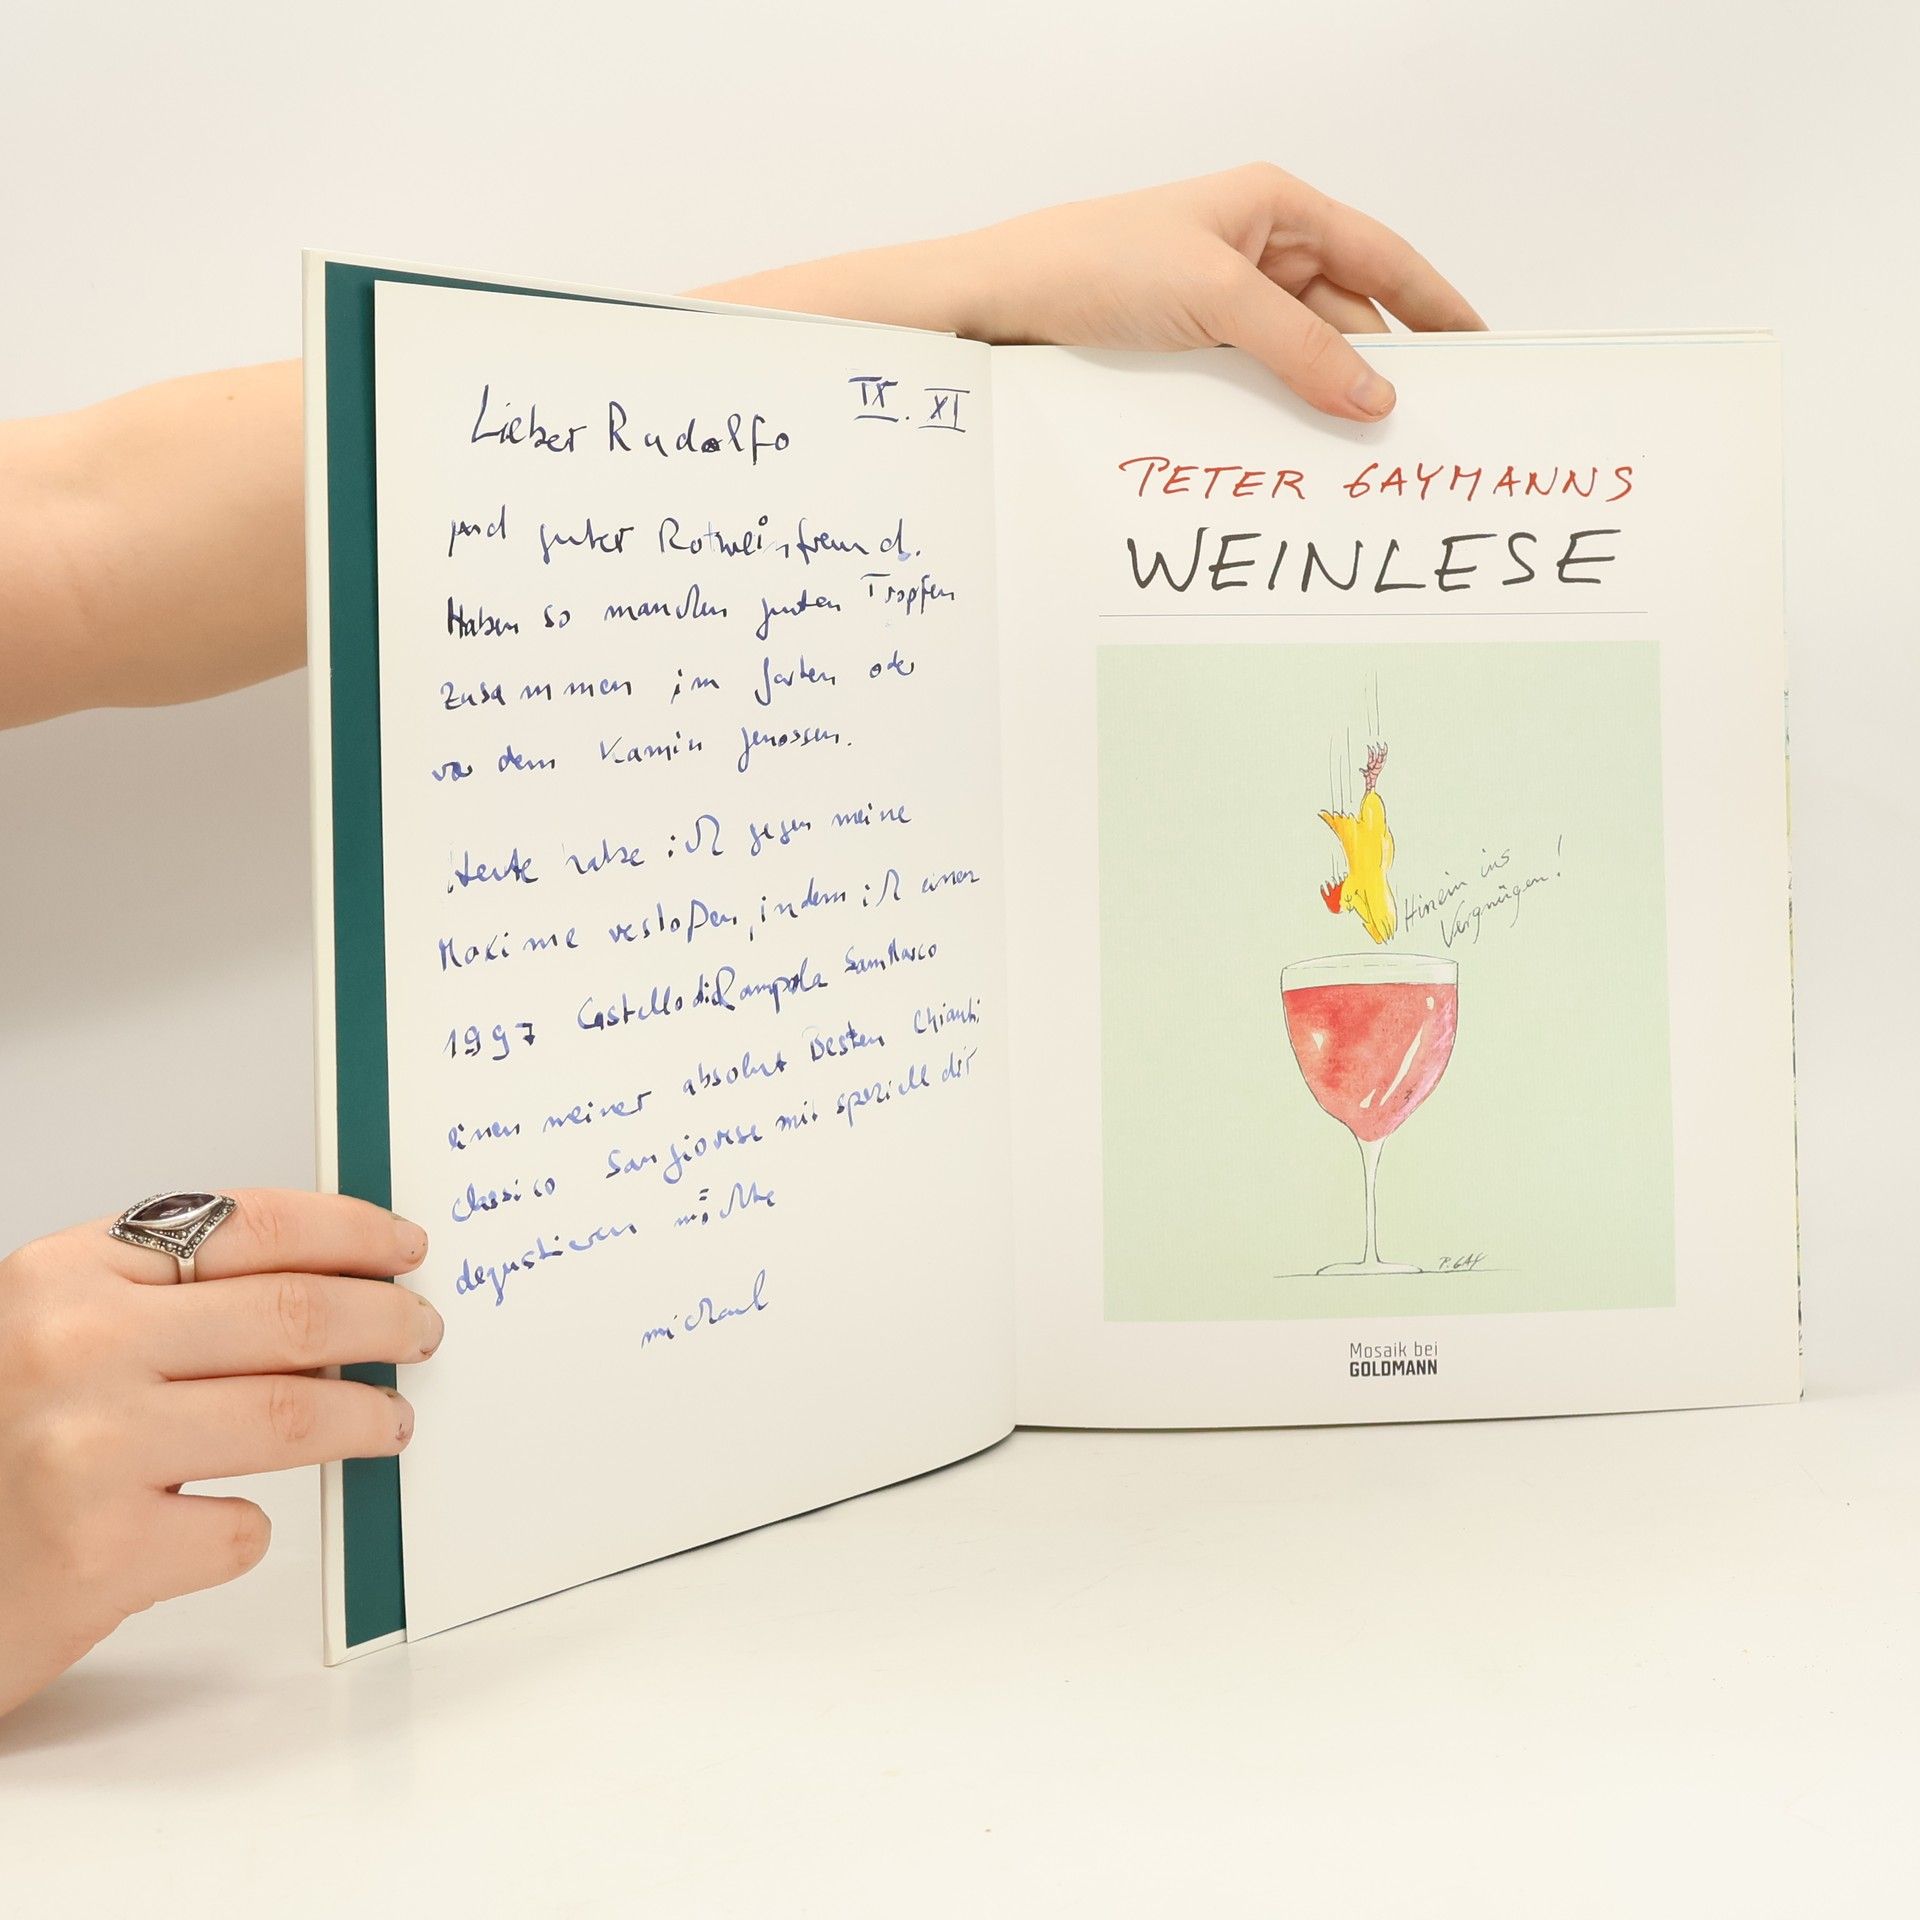 IX. XI
Lieber Rudolfo
und guter Rotweinfreund.
Haben so manchen guten Tropfen
zusammen im Garten oder
vor dem Kamin genossen.
Heute habe ich gegen meine
Maxime verstoßen, indem ich einen
1997 Castello di Rampola San Marco
einen meiner absolut Besten Chianti
classico Sangiovese mit speziell dir
degustieren möchte
michael
PETER GAYMANNS
WEINLESE
Hinein ins
Vergnügen!
P. GAY
Mosaik bei
GOLDMANN